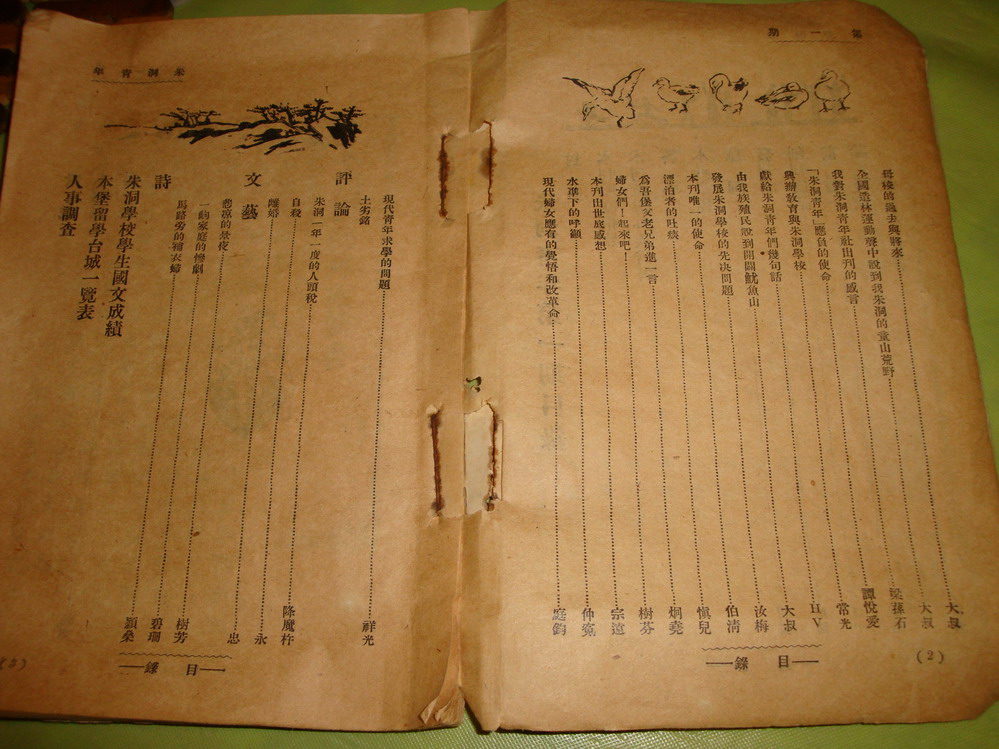 第一期
母校的過去與將來 大叔
全國造林運動聲中說到我朱洞的童山荒野 大叔
我對朱洞青年社出刊的感言 梁蓀石
「朱洞青年」應負的使命 譚悅愛
興辦教育與朱洞學校 常光
獻給朱洞青年們幾句話 H V
由我族殖民說到開闢魷魚山 大叔
發展朱洞學校的先决問題 汝梅
本刊唯一的使命 伯清
漂泊者的吐痰 愼兒
為吾堡父老兄弟進一言 炯堯
婦女們!起來吧! 樹芬
本刊出世底感想 宗遠
水準下的呼籲 仲寃
現代婦女應有的覺悟和改革命 庭鈞
目錄
(2)
朱洞青年
現代青年求學的問題 祥光
土劣銘
評論
朱洞一年一度的人頭稅
自殺 降魔杵
離婚 永
文藝
悲凉的景夜 忠
一齣家庭的慘劇
馬路旁的補衣婦 樹芳
詩 碧珊
穎燊
朱洞學校學生國文成績
本堡留學台城一覽表
人事調查
目錄
(3)